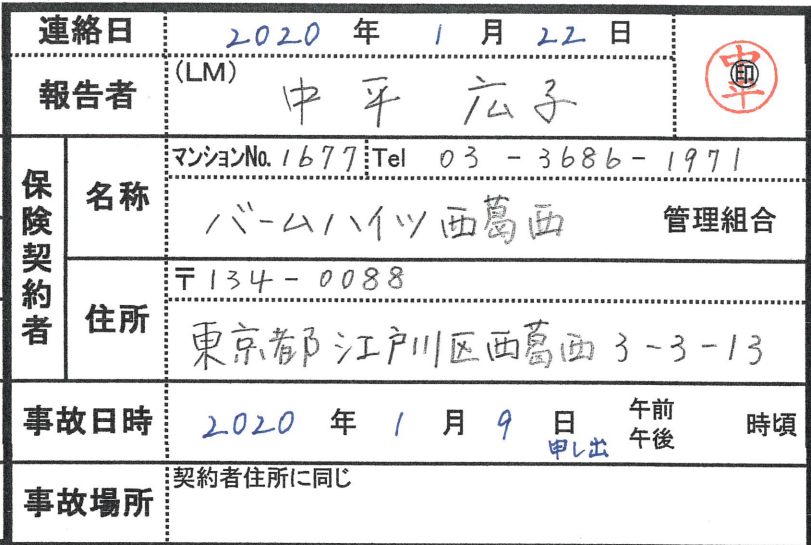 連絡日 2020 年 1 月 22 日
報告者 (LM) 中平 広子
中平 印
保険契約者
名称 マンションNo. 1677 Tel 03-3686-1971
バームハイツ西葛西 管理組合
住所 〒134-0088
東京都江戸川区西葛西3-3-13
事故日時 2020 年 1 月 9 日 午前 時頃
申し出 午後
事故場所 契約者住所に同じ